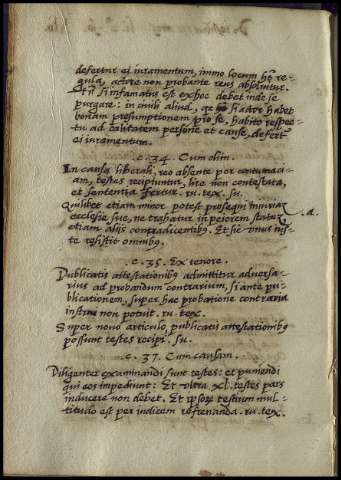 defertur ei iuramentum, immo locum hẽ re-
gula, actore non probante reus absoluitur.
Tñ si infamatus est ex hoc debet inde se
purgare: in ciuili aliud, qz si actor habet
bonam presumptionem pro se, habito respec-
tu ad qualitatem persone et cause, defertr
ei iuramentum.
.c. 34. Cum olim.
In causa liberali, reo absente per contumaci-
am, testes recipiuntur, lite non contestata,
et sententia fertur. ru. tex. su.
Quilibet etiam minor potest prosequi iniuriã
ecclesie sue, ne trahatur in peiorem statum .a.
etiam aliis contradicentibꝰ. Et sic unus iu-
te resistit omnibꝰ.
.c. 35. Ex tenore.
Publicatis attestationibꝰ admittitur aduersa-
rius ad probandum contrarium, si ante pu-
blicationem, super hac probatione contraria
instrui non potuit. ru. tex.
Super nouo articulo, publicatis attestationibꝰ
possunt testes recipi. su.
.c. 37. Cum causam.
Diligenter examinandi sunt testes: et puniendi
qui eos impediunt: Et vltra xl. testes pars
inducere non debet. Et ipsorum testium mul-
titudo est per iudicem refrenanda. ru. tex.